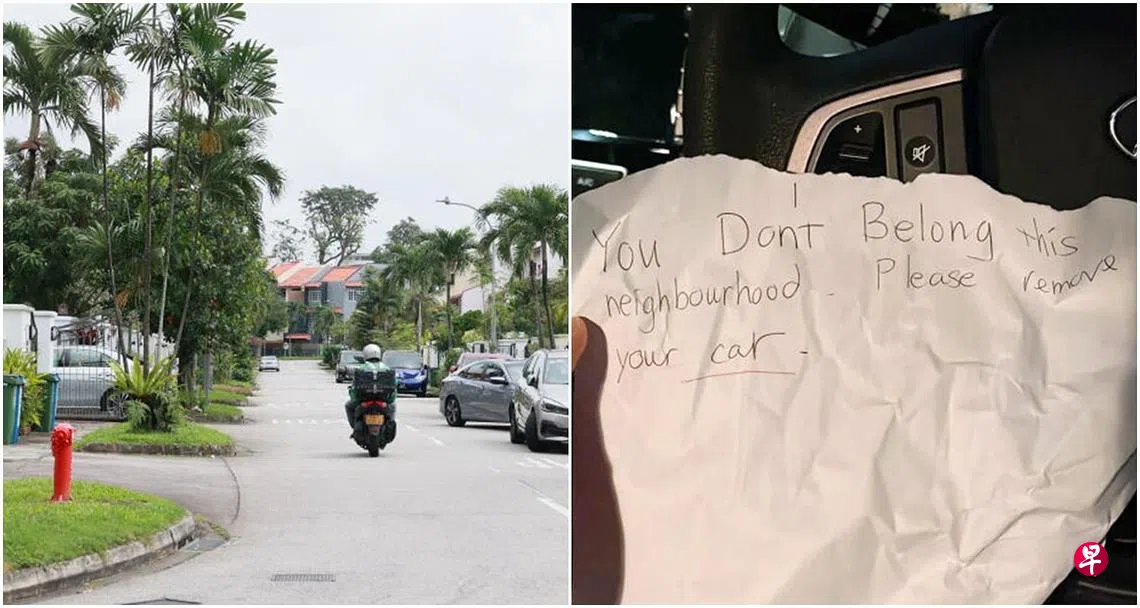 You Dont Belong this
neighbourhood. Please remove
your car -
早